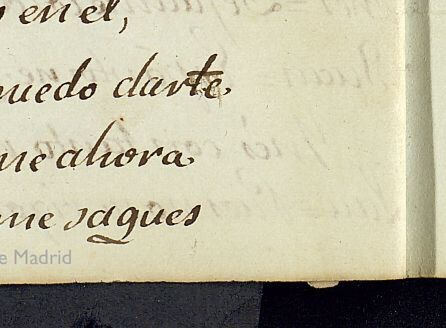 en el,
puedo darte
me ahora
me saques
e Madrid